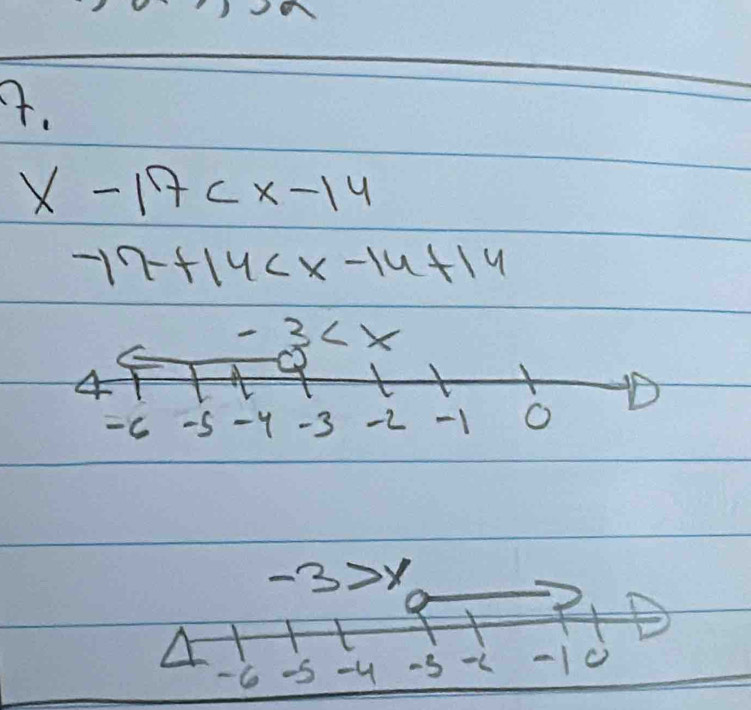 7.
X - 17 < x - 14
-17 + 14 < x - 14 + 14
-3 < x
-6 -5 -4 -3 -2 -1 0
-3 > x
-6 -5 -4 -3 -2 -1 0